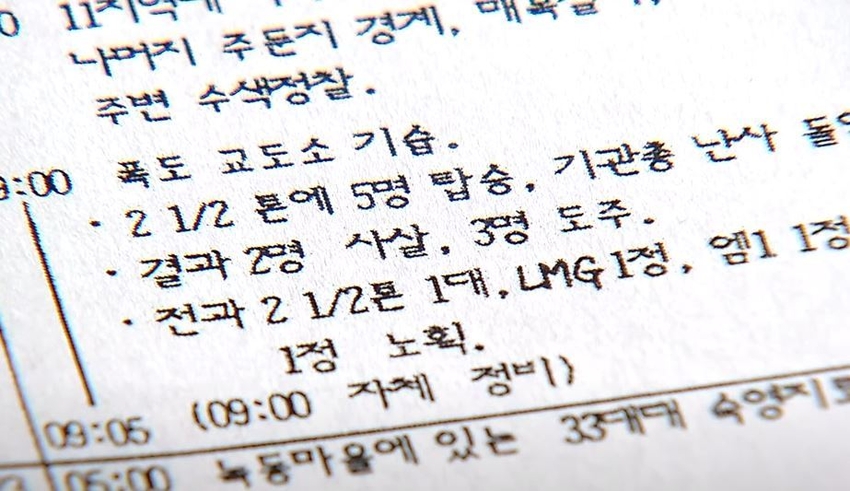 나머지 주둔지 경계, 매복
주변 수색정찰.
:00 폭도 교도소 기습.
· 2 1/2 톤에 5명 탑승, 기관총 난사
· 결과 2명 사살, 3명 도주.
· 전과 2 1/2톤 1대, LMG 1정, 엠1 1정
1정 노획.
09:05 (09:00 자체 정비)
05:00 녹동마을에 있는 33대대 숙영지